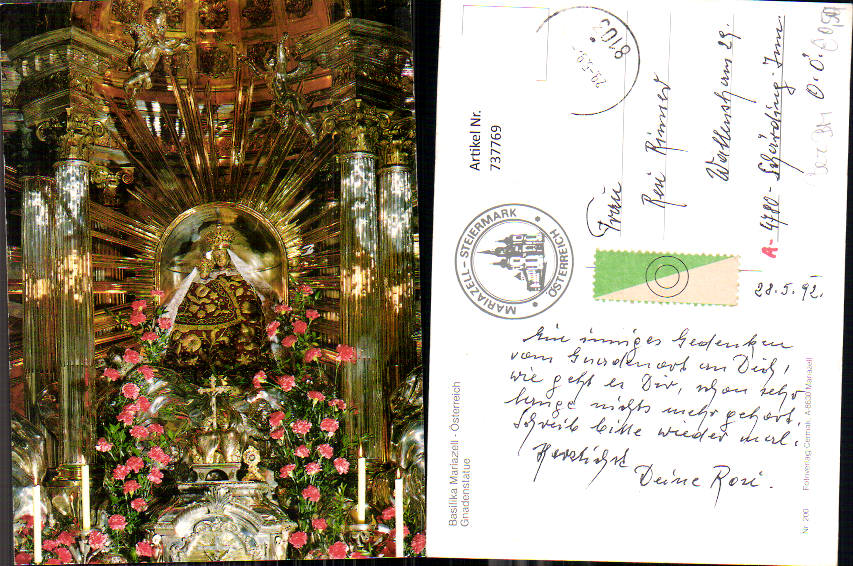 Artikel Nr.
737769
8103
Frau
Resi
29.
A-4780-Schärding-Inn.
O.Ö.
MARIAZELL – STEIERMARK
ÖSTERREICH
28.5.92.
Ein inniges Gedenken
vom Gnadenort an Dich,
wie geht es Dir, schon sehr
lange nichts mehr gehört.
Schreib bitte wieder mal.
Herzlichst
Deine Rosi.
Basilika Mariazell - Österreich
Gnadenstatue
Nr. 200 Fotoverlag Cermak A-8630 Mariazell